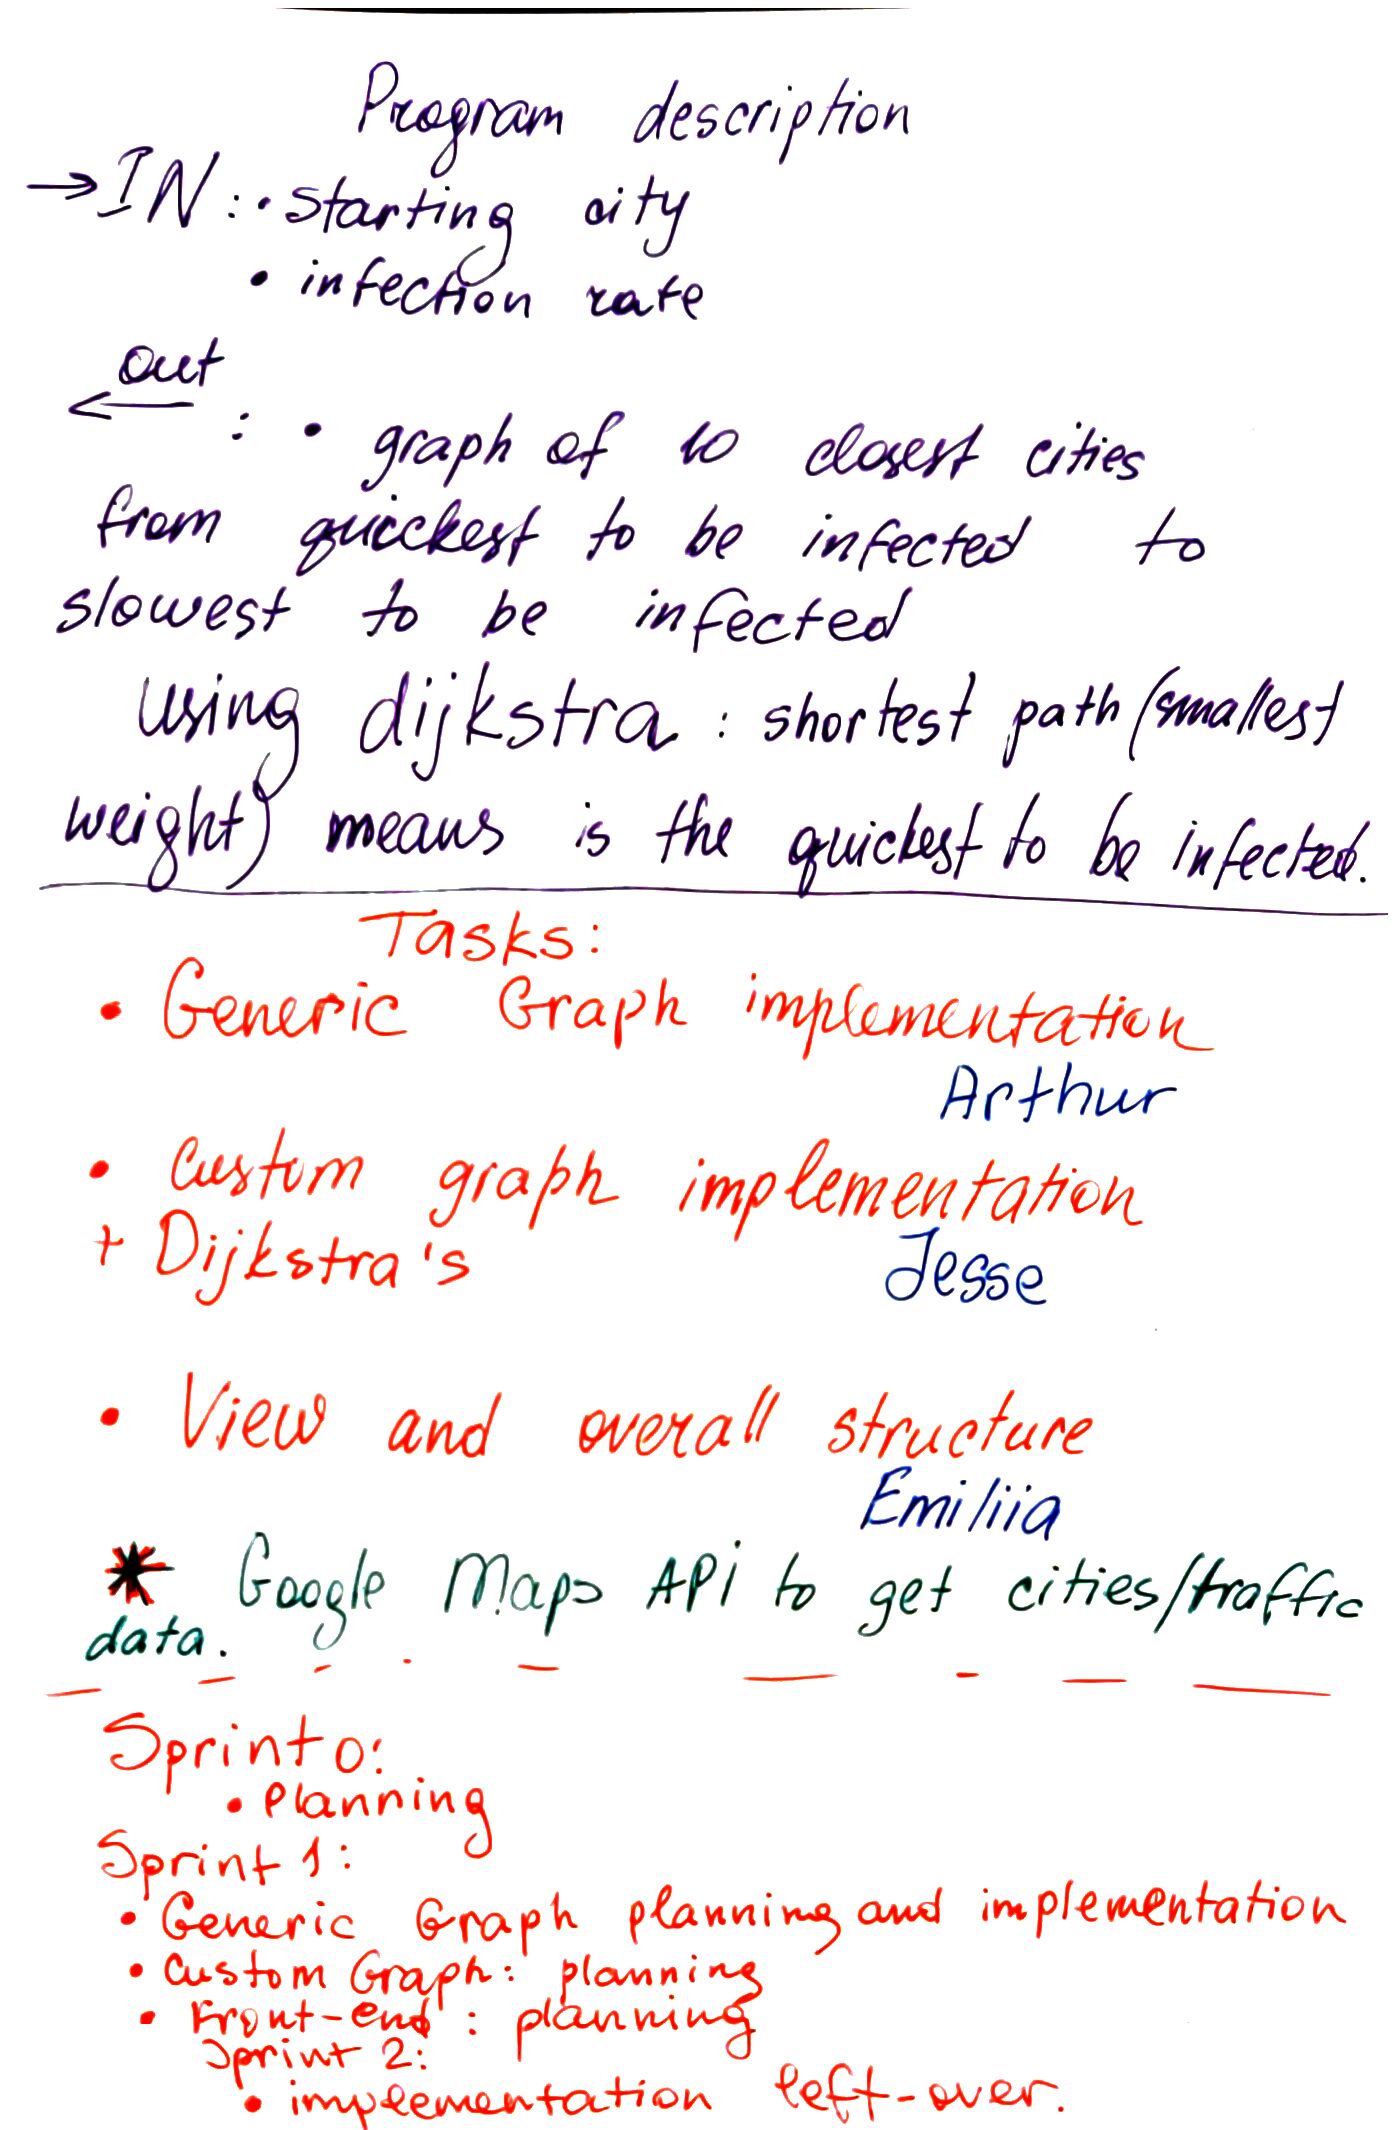 Program description
→ IN: • starting city
• infection rate
out
← : • graph of 10 closest cities
from quickest to be infected to
slowest to be infected
using dijkstra: shortest path (smallest
weight) means is the quickest to be infected.
Tasks:
• Generic Graph implementation
Arthur
• Custom graph implementation
+ Dijkstra's
Jesse
• View and overall structure
Emiliia
* Google Maps API to get cities/traffic
data.
Sprint 0:
• Planning
Sprint 1:
• Generic Graph planning and implementation
• Custom Graph: planning
• Front-end: planning
Sprint 2:
• implementation left-over.